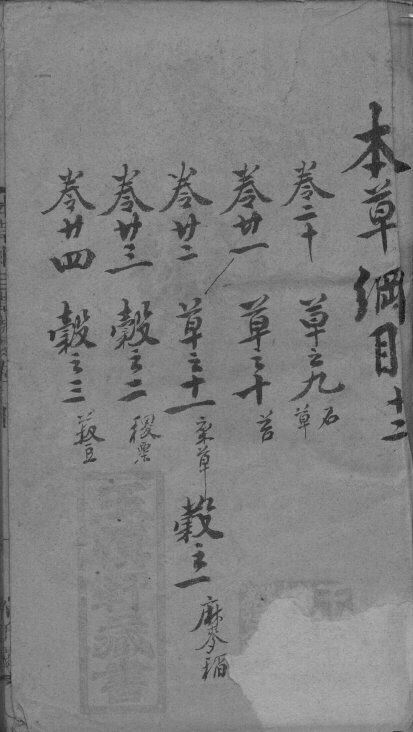 本草綱目 十二
卷二十 草之九 石草
卷廿一 草之十 苔
卷廿二 草之十一 雜草 穀之一 麻麥稻
卷廿三 穀之二 稷粟
卷廿四 穀之三 菽豆